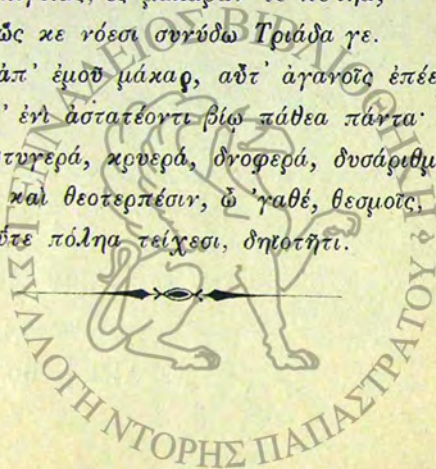 ὥς κε νόεσι συνύδω Τριάδα γε.
ἀπ' ἐμοῦ μάκαρ, αὖτ' ἀγανοῖς ἐπέε
' ἐνὶ ἀστατέοντι βίῳ πάθεα πάντα·
τυγερά, κρυερά, δνοφερά, δυσάριθμ
καὶ θεοτερπέσιν, ὦ 'γαθέ, θεσμοῖς,
ὖτε πόληα τείχεσι, δηϊοτῆτι.
ΓΕΝΝΑΔΕΙΟΣ ΒΙΒΛΙΟΘΗΚΗ
ΣΥΛΛΟΓΗ ΝΤΟΡΗΣ ΠΑΠΑΣΤΡΑΤΟΥ